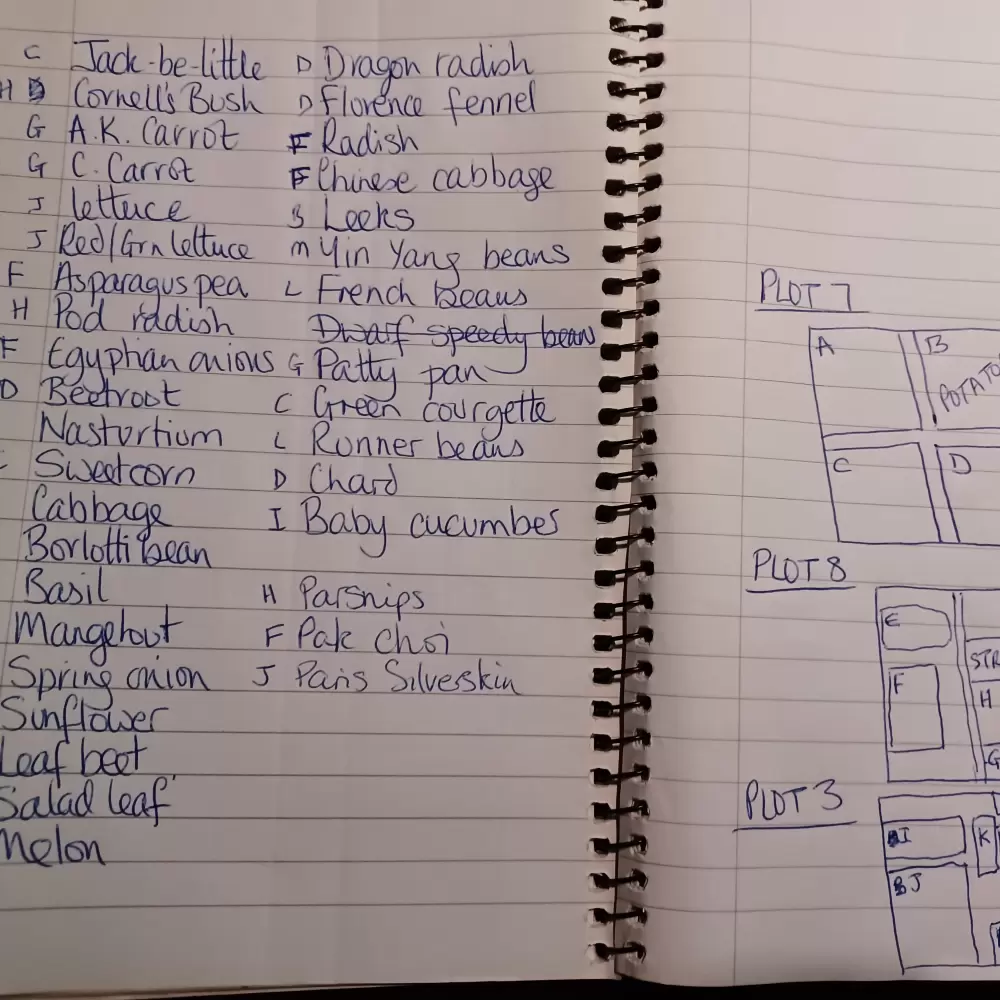 C Jack-be-little
H Cornell's Bush
G A.K. Carrot
G C. Carrot
J lettuce
J Red/Grn lettuce
F Asparagus pea
H Pod radish
F Egyphan onions
D Beetroot
Nastortium
Sweetcorn
Cabbage
Borlotti bean
Basil
Mangetout
Spring onion
Sunflower
Leaf beet
Salad leaf
Melon
D Dragon radish
D Florence fennel
F Radish
F Chinese cabbage
B Leeks
M Yin Yang beans
L French Beans
Dwarf speedy bean
G Patty pan
C Green courgette
L Runner beans
D Chard
I Baby cucumbes
H Parsnips
F Pak choi
J Paris Silverskin
PLOT 7
A
B
POTATO
C
D
PLOT 8
E
STR
F
H
G
PLOT 3
I
K
J